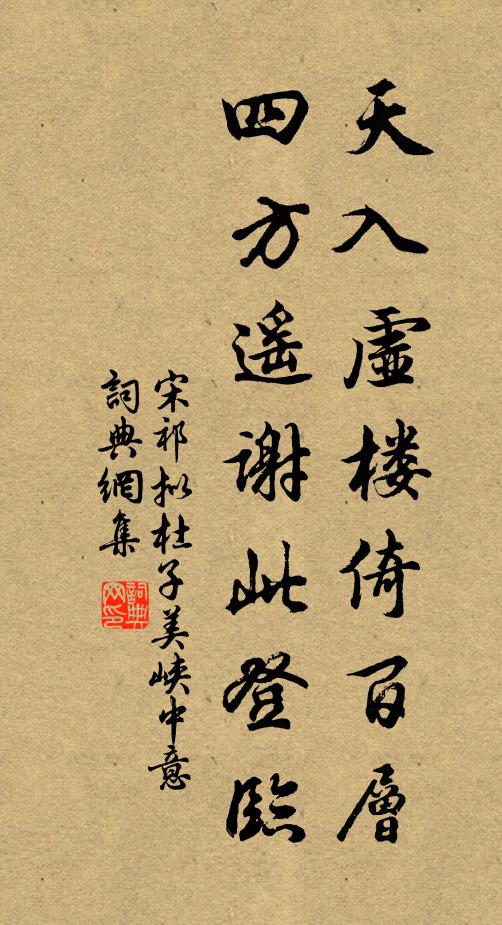 天入虛楼倚百層
四方遥谢此登臨
宋祁拟杜子美峡中意
詞典網集
詞典网印